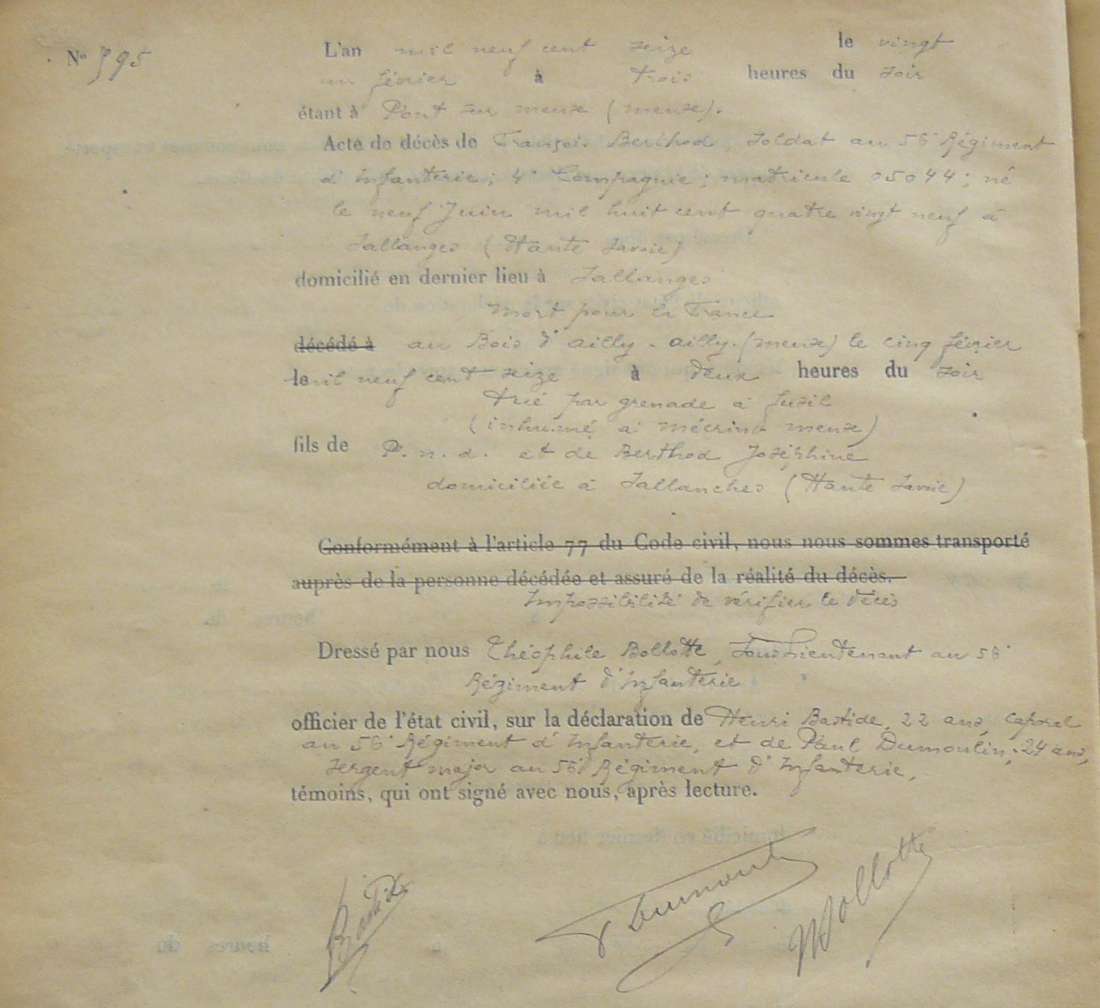 No 595
L'an mil neuf cent seize le vingt
un février à trois heures du soir
étant à Pont sur meuse (meuse).
Acte de décès de François Berthod, soldat au 56e Régiment
d'infanterie; 4e Compagnie; matricule 05044; né
le neuf Juin mil huit cent quatre vingt neuf à
Sallanges (Haute Savoie)
domicilié en dernier lieu à Sallanges
Mort pour la France
décédé à au Bois d'ailly - ailly - (meuse) le cinq février
le mil neuf cent seize à deux heures du soir
tué par grenade à fusil
(inhumé à mécrin meuse)
fils de P. n. d. et de Berthod Joséphine
domiciliée à Sallanches (Haute Savoie)
Conformément à l'article 77 du Code civil, nous nous sommes transporté
auprès de la personne décédée et assuré de la réalité du décès.
Impossibilité de vérifier le décès
Dressé par nous Théophile Bollotte, Sous-lieutenant au 56e
Régiment d'Infanterie
officier de l'état civil, sur la déclaration de Henri Bastide, 22 ans, Caporal
au 56e Régiment d'Infanterie, et de Paul Dumoulin, 24 ans,
Sergent major au 56e Régiment d'Infanterie,
témoins, qui ont signé avec nous, après lecture.
Bastide Bollotte